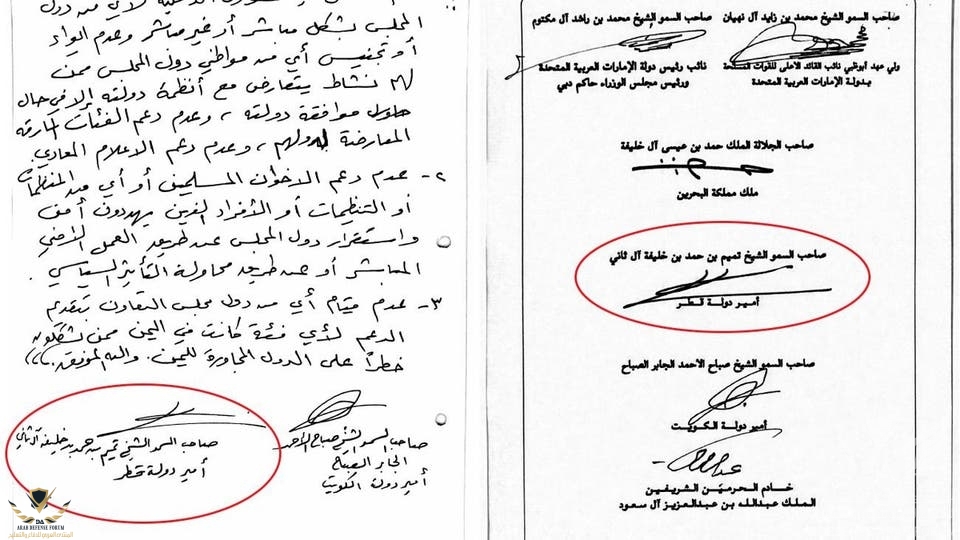 المجلس بشكل مباشر أو غير مباشر وعدم إيواء
أو تجنيس أي من مواطني دول المجلس ممن
لهم نشاط يتعارض مع أنظمة دولته إلا في حال
موافقة دولته ، وعدم دعم الفئات المارقه
المعارضة لدولهم ، وعدم دعم الاعلام المعادي.
٢- عدم دعم الاخوان المسلمين أو أي من المنظمات
أو التنظيمات أو الأفراد الذين يهددون أمن
واستقرار دول المجلس عن طريق العمل الأمني
المباشر أو عن طريق محاولة التأثير السياسي.
٣- عدم قيام أي من دول مجلس التعاون بتقديم
الدعم لأي فئة كانت في اليمن ممن يشكلون
خطراً على الدول المجاورة لليمن. والله الموفق،،،
صاحب السمو الشيخ صباح الأحمد
الجابر الصباح
أمير دولة الكويت
صاحب السمو الشيخ تميم بن حمد بن خليفة آل ثاني
أمير دولة قطر
ARAB DEFENSE FORUM
صاحب السمو الشيخ محمد بن زايد آل نهيان
ولي عهد أبوظبي نائب القائد الاعلى للقوات المسلحة
بـدولـة الإمارات العربية المتحدة
صاحب السمو الشيخ محمد بن راشد آل مكتوم
نائب رئيس دولة الإمارات العربية المتحدة
ورئيس مجلس الوزراء حاكم دبي
صاحب الجلالة الملك حمد بن عيسى آل خليفة
ملك مملكة البحرين
صاحب السمو الشيخ تميم بن حمد بن خليفة آل ثاني
أمـير دولـة قـطر
صاحب السمو الشيخ صباح الاحمد الجابر الصباح
أمير دولة الكويت
خـادم الـحرميـن الـشريفـين
الـملك عبدالله بن عبدالعزيز آل سعود